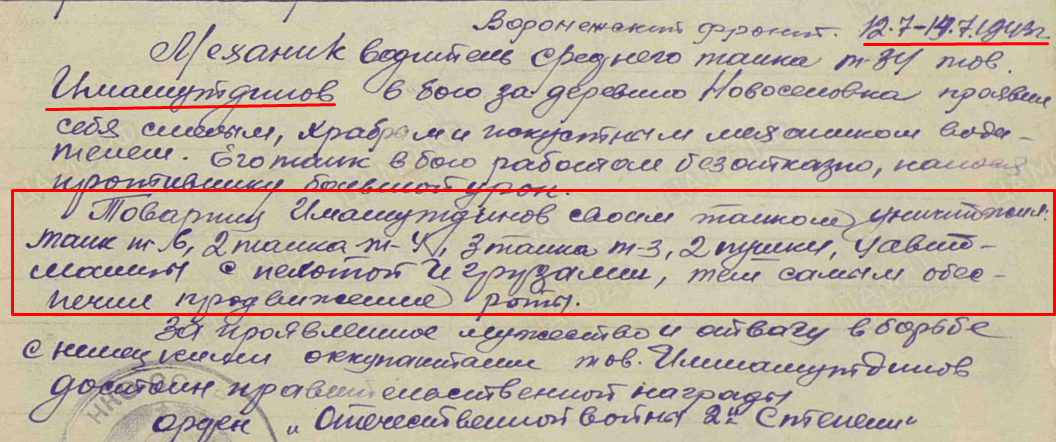 Воронежский фронт. 12.7-19.7.1943г.
Механик водитель среднего танка т-34 тов.
Имашутдинов в бою за деревню Новоселовка проявил
себя смелым, храбрым и искустным механиком води-
телем. Его танк в бою работал безотказно, нанося
противнику большой урон.
Товарищ Имашутдинов своим танком уничтожил:
танк т-6, 2 танка т-4, 3 танка т-3, 2 пушки, 4 авто-
машины с пехотой и грузами, тем самым обес-
печил продвижение роты.
За проявленное мужество и отвагу в борьбе
с немецкими оккупантами тов. Имашутдинов
достоин правительственной награды
орден „Отечественной война 2й Степени"